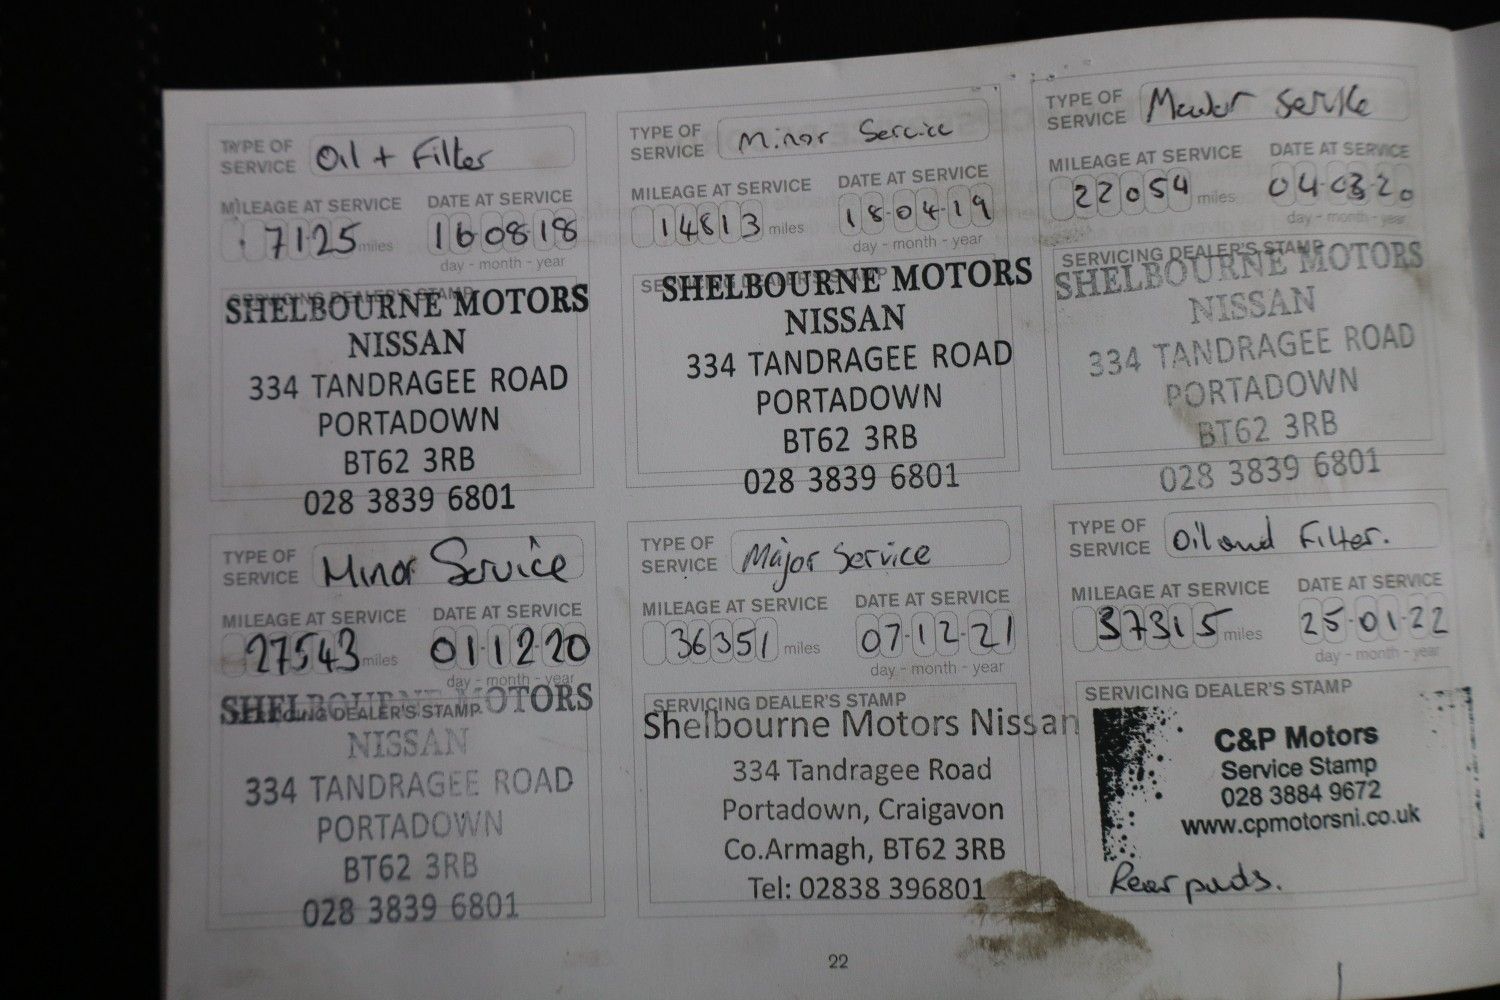 TYPE OF SERVICE Oil + Filter
MILEAGE AT SERVICE DATE AT SERVICE
7125 miles 16 08 18
day - month - year
SERVICING DEALER'S STAMP
SHELBOURNE MOTORS
NISSAN
334 TANDRAGEE ROAD
PORTADOWN
BT62 3RB
028 3839 6801
TYPE OF SERVICE Minor Service
MILEAGE AT SERVICE DATE AT SERVICE
14813 miles 18-04-19
day - month - year
SERVICING DEALER'S STAMP
SHELBOURNE MOTORS
NISSAN
334 TANDRAGEE ROAD
PORTADOWN
BT62 3RB
028 3839 6801
TYPE OF SERVICE Service
MILEAGE AT SERVICE DATE AT SERVICE
22054 miles 04-03-20
day - month - year
SERVICING DEALER'S STAMP
SHELBOURNE MOTORS
NISSAN
334 TANDRAGEE ROAD
PORTADOWN
BT62 3RB
028 3839 6801
TYPE OF SERVICE Minor Service
MILEAGE AT SERVICE DATE AT SERVICE
27543 miles 01-12-20
day - month - year
SERVICING DEALER'S STAMP
SHELBOURNE MOTORS
NISSAN
334 TANDRAGEE ROAD
PORTADOWN
BT62 3RB
028 3839 6801
TYPE OF SERVICE Major Service
MILEAGE AT SERVICE DATE AT SERVICE
36351 miles 07-12-21
day - month - year
SERVICING DEALER'S STAMP
Shelbourne Motors Nissan
334 Tandragee Road
Portadown, Craigavon
Co.Armagh, BT62 3RB
Tel: 02838 396801
TYPE OF SERVICE Oil and Filter.
MILEAGE AT SERVICE DATE AT SERVICE
37315 miles 25-01-22
day - month - year
SERVICING DEALER'S STAMP
C&P Motors
Service Stamp
028 3884 9672
www.cpmotorsni.co.uk
Rear pads.
22